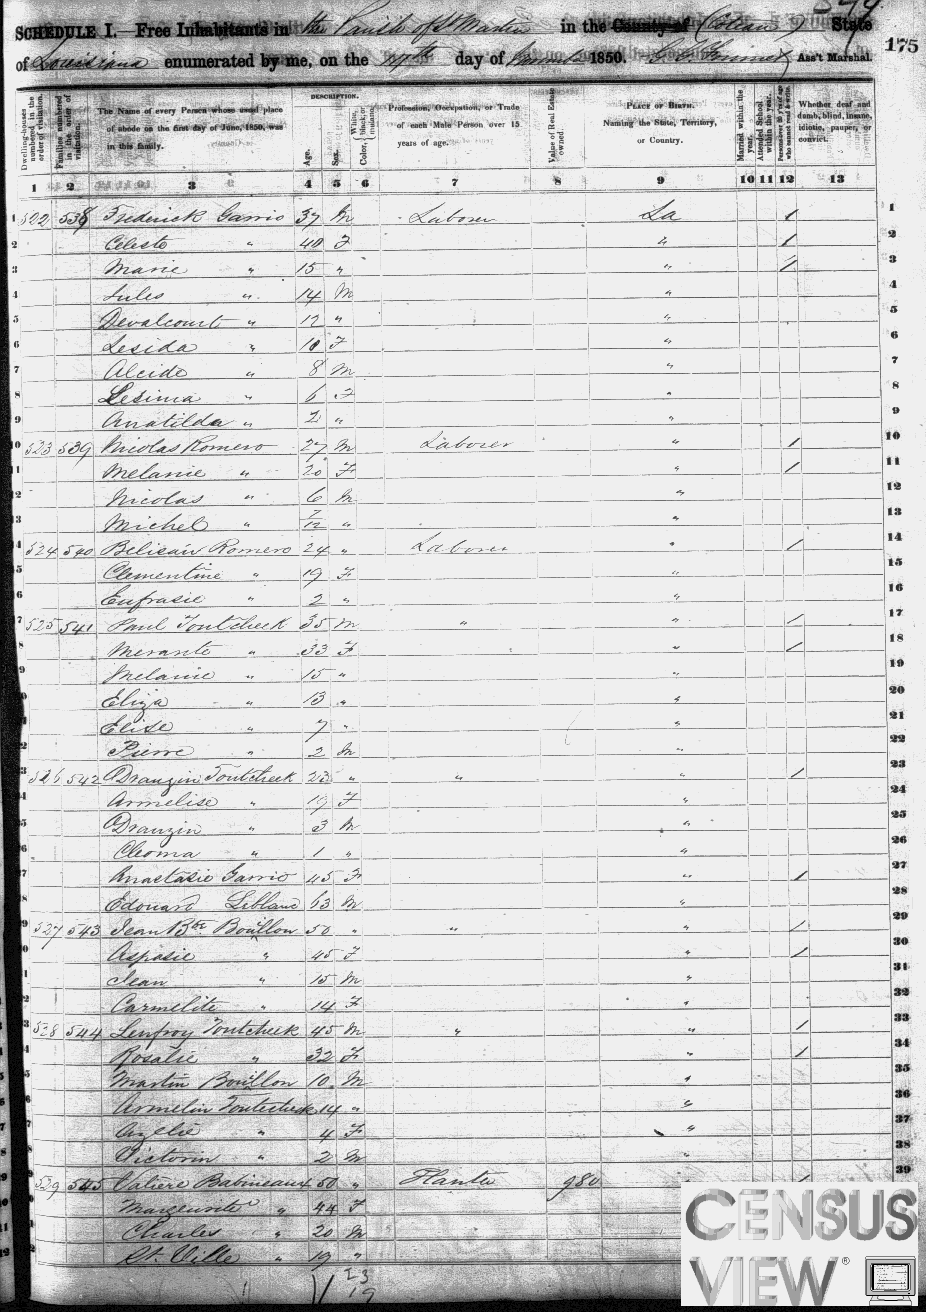 574
SCHEDULE I.—Free Inhabitants in the Parish of St Martin in the County of State
175
of Louisiana enumerated by me, on the day of 1850. Ass't Marshal.
DESCRIPTION.
Dwelling-houses numbered in the order of visitation.
Families numbered in the order of visitation.
The Name of every Person whose usual place of abode on the first day of June, 1850, was in this family.
Age.
Sex.
Color, White, black, or mulatto.
Profession, Occupation, or Trade of each Male Person over 15 years of age.
Value of Real Estate owned.
PLACE OF BIRTH. Naming the State, Territory, or Country.
Married within the year.
Attended School within the year.
Persons over 20 y'rs of age who cannot read & write.
Whether deaf and dumb, blind, insane, idiotic, pauper, or convict.
1 2 3 4 5 6 7 8 9 10 11 12 13
1 522 538 Frederick Garrio 37 M Laborer La / 1
2 Celeste " 40 F " / 2
3 Marie " 15 " " / 3
4 Jules " 14 M " 4
5 Devalcourt " 12 " " 5
6 Lesida " 10 F " 6
7 Alcide " 8 M " 7
8 Lesima " 6 F " 8
9 Anatilda " 2 " " 9
10 523 539 Nicolas Romero 27 M Laborer " / 10
11 Melanie " 20 F " / 11
12 Nicolas " 6 M " 12
13 Michel " 7/12 " " 13
14 524 540 Belisair Romero 24 " Laborer " / 14
15 Clementine " 19 F " 15
16 Eufrasie " 2 " " 16
17 525 541 Paul Toutcheek 35 M " " / 17
18 Merante " 33 F " / 18
19 Melanie " 15 " " 19
20 Eliza " 13 " " 20
21 Elise " 7 " " 21
22 Pierre " 2 M " 22
23 526 542 Drauzin Toutcheek 23 " " " / 23
24 Armelise " 19 F " 24
25 Drauzin " 3 M " 25
26 Cleoma " 1 " " 26
27 Anastasie Garrio 45 F " / 27
28 Edouard Leblanc 63 M 28
29 527 543 Jean Bte Bouillon 50 " " " / 29
30 Aspasie " 45 F " / 30
31 Jean " 15 M " 31
32 Carmelite " 14 F " 32
33 528 544 Lenfroy Toutcheek 45 M " " / 33
34 Rosalie " 32 F " / 34
35 Martin Bouillon 10 M " 35
36 Armelin Toutcheek 14 " " 36
37 Azelie " 4 F " 37
38 Victorin " 2 M " 38
39 529 545 Valiere Babineaux 50 " Planter 980 39
Marguerite " 44 F
Charles " 20 M
St. Ville " 19 "
23
19
CENSUS
VIEW®